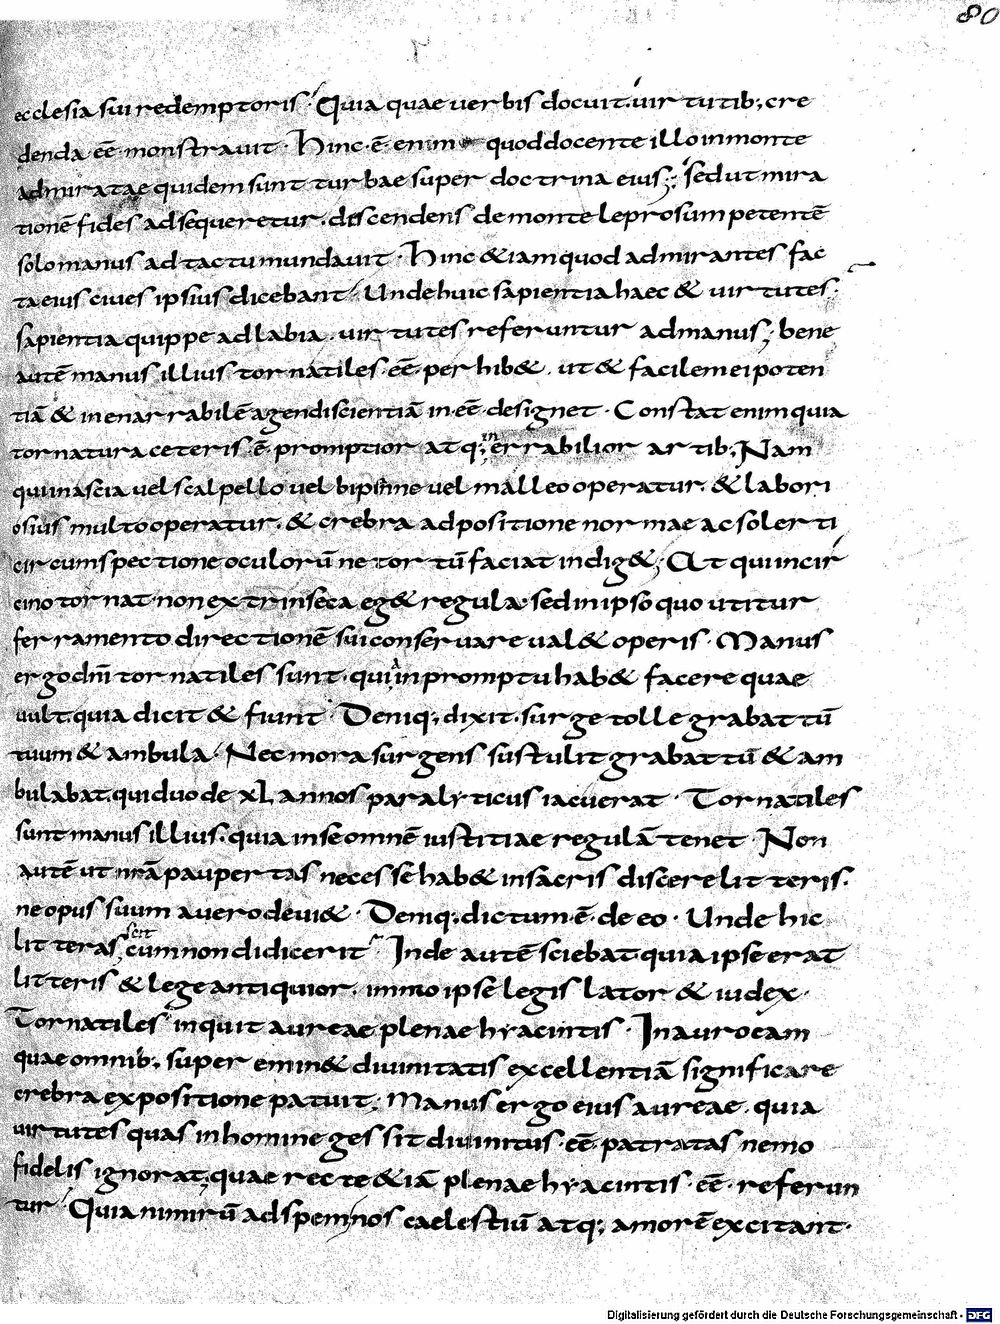 80
ecclesia sui redemptoris. Quia quae uerbis docuit. uirtutib; cre
denda eē monstrauit. Hinc ē enim quod docente illo in monte
admiratae quidem sunt turbae super doctrina eius; sed ut mira
tionē fides adsequeretur. discendens de monte leprosum petentē
solo manus ad tactu mundauit. Hinc &iam quod admirantes fac
ta eius ciues ipsius dicebant. Unde huic sapientia haec & uirtutes.
sapientia quippe ad labia. uirtutes referuntur ad manus; bene
autē manus illius tornatiles eē perhib&. ut & facilem ei poten
tiā & inenarrabilē agendi scientiā in eē designet. Constat enim quia
tornatura ceteris ē promptior atq; inerrabilior artib; Nam
qui in ascia uel scalpello uel bipinne uel malleo operatur. & labori
osius multo operatur. & crebra adpositione normae ac solerti
circumspectione oculorū ne tortū faciat indig&; At qui in cir
cino tornat. non extrinseca eg& regula. sed in ipso quo utitur
ferramento directionē sui conseruare ual& operis. Manus
ergo dn̄i tornatiles sunt. quia in promptu hab& facere quae
uult. quia dicit & fiunt. Deniq; dixit. surge tolle grabattū
tuum & ambula. Nec mora surgens sustulit grabattū & am
bulabat. qui duo de xL annos paralyticus iacuerat. Tornatiles
sunt manus illius. quia in se omnē iustitiae regulā tenet. Non
autē ut nr̄a paupertas necesse hab& in sacris discere litteris.
ne opus suum a uero deui&. Deniq; dictum ē de eo. Unde hic
litteras scit cum non didicerit. Inde autē sciebat. quia ipse erat
litteris & lege antiquior. immo ipse legis lator & iudex.
Tornatiles inquit aureae plenae hyacintis. In auro eam
quae omnib; super emin& diuinitatis excellentiā significare
crebra expositione patuit; Manus ergo eius aureae. quia
uirtutes quas in homine gessit diuinitus eē patratas nemo
fidelis ignorat; quae recte &iā plenae hyacintis eē referun
tur. Quia nimirū ad spem nos caelestiū atq; amorē excitant.
Digitalisierung gefördert durch die Deutsche Forschungsgemeinschaft - DFG